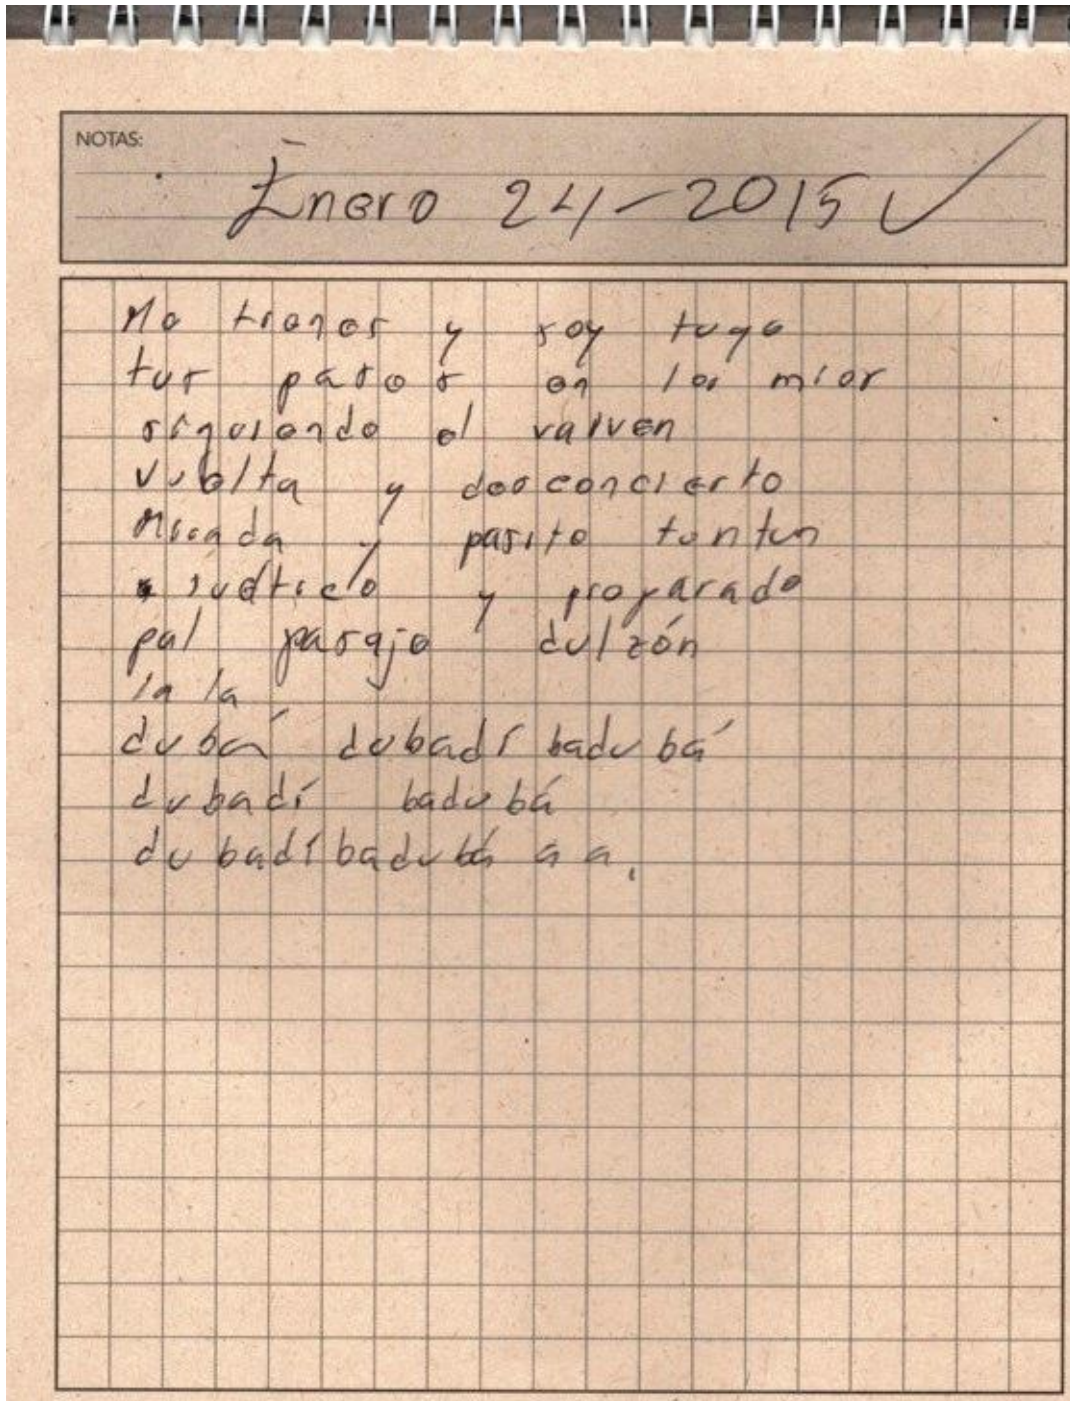 NOTAS:
Enero 24-2015
Me tienes y soy tuyo
tus pasos en los míos
siguiendo el vaiven
vuelta y desconcierto
Mirada y pasito tuntun
y preparado
pal pasaje dulzón
la la
dubá dubadí badubá
dubadí badubá
dubadíbadubá a a.